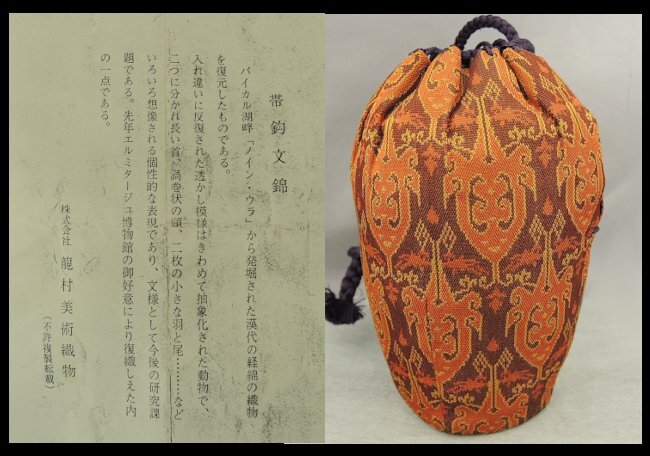 帯鉤文錦
バイカル湖畔「ノイン・ウラ」から発掘された漢代の経綿の織物
を復元したものである。
入れ違いに反復された透かし模様はきわめて抽象化された動物で、
二つに分かれ長い首、渦巻状の頭、二枚の小さな羽と尾………など
いろいろ想像される個性的な表現であり、文様として今後の研究課
題である。先年エルミタージュ博物館の御好意により復織しえた内
の一点である。
株式会社 龍村美術織物
(不許複製転載)